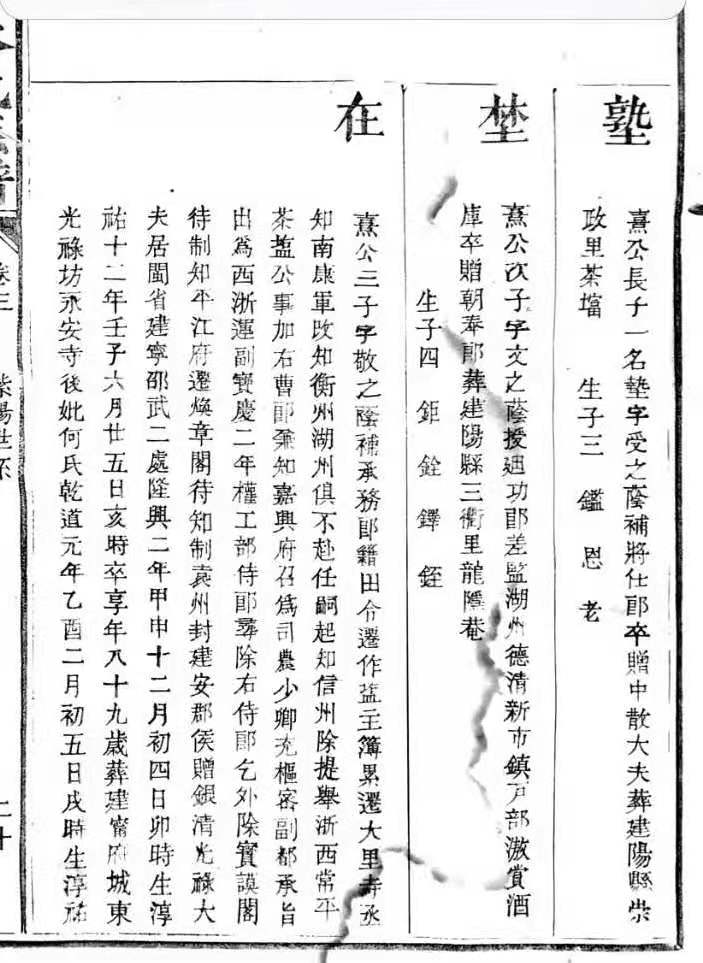 塾
熹公長子一名墊字受之蔭補將仕郎卒贈中散大夫葬建陽縣崇
政里茶壋 生子三 鑑 恩 老
埜
熹公次子字文之蔭授廸功郎差監湖州德清新市鎮戶部激賞酒
庫卒贈朝奉郎葬建陽縣三衢里龍隱菴
生子四 鉅 銓 鐸 銍
在
熹公三子字敬之蔭補承務郎籍田令遷作監主簿累遷大里寺丞
知南康軍改知衡州湖州俱不赴任嗣起知信州除提舉浙西常平
茶塩公事加右曹郎兼知嘉興府召為司農少卿充樞密副都承旨
出為西浙運副寶慶二年權工部侍郎尋除右侍郎乞外除寶謨閣
待制知平江府遷煥章閣待知制袁州封建安郡侯贈銀清光祿大
夫居閩省建寧邵武二處隆興二年甲申十二月初四日卯時生淳
祐十二年壬子六月廿五日亥時卒享年八十九歲葬建甯府城東
光祿坊永安寺後妣何氏乾道元年乙酉二月初五日戌時生淳祐
卷三 紫陽世系
二十